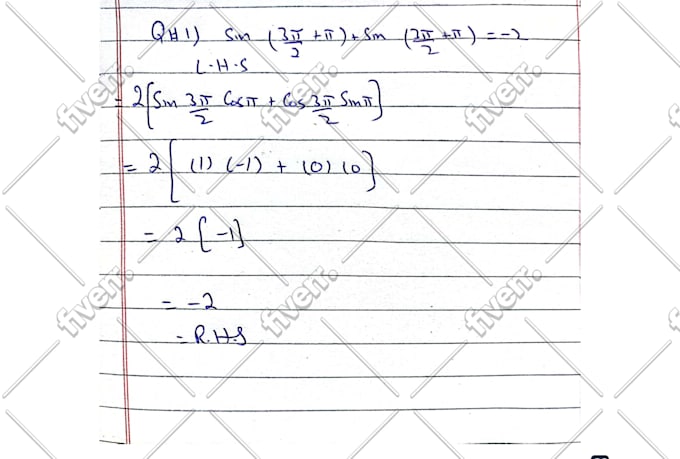 Q#1) Sin (3π/2 + π) + Sin (3π/2 + π) = -2
L.H.S
= 2[Sin 3π/2 Cosπ + Cos 3π/2 Sinπ]
= 2[(1) (-1) + (0) (0]
= 2[-1]
= -2
= R.H.S
fiverr.
fiverr.
fiverr.
fiverr.
fiverr.
fiverr.